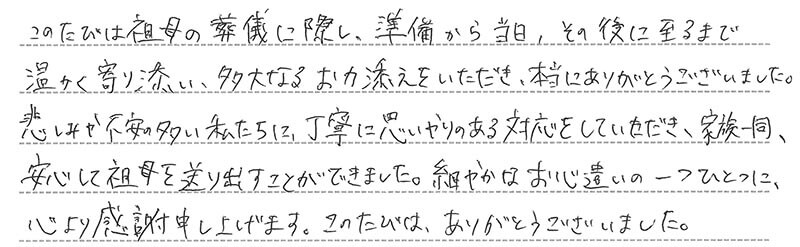 このたびは祖母の葬儀に際し、準備から当日、その後に至るまで
温かく寄り添い、多大なるお力添えをいただき、本当にありがとうございました。
悲しみや不安の多い私たちに、丁寧に思いやりのある対応をしていただき、家族一同、
安心して祖母を送り出すことができました。細やかなお心遣いの一つひとつに、
心より感謝申し上げます。このたびは、ありがとうございました。